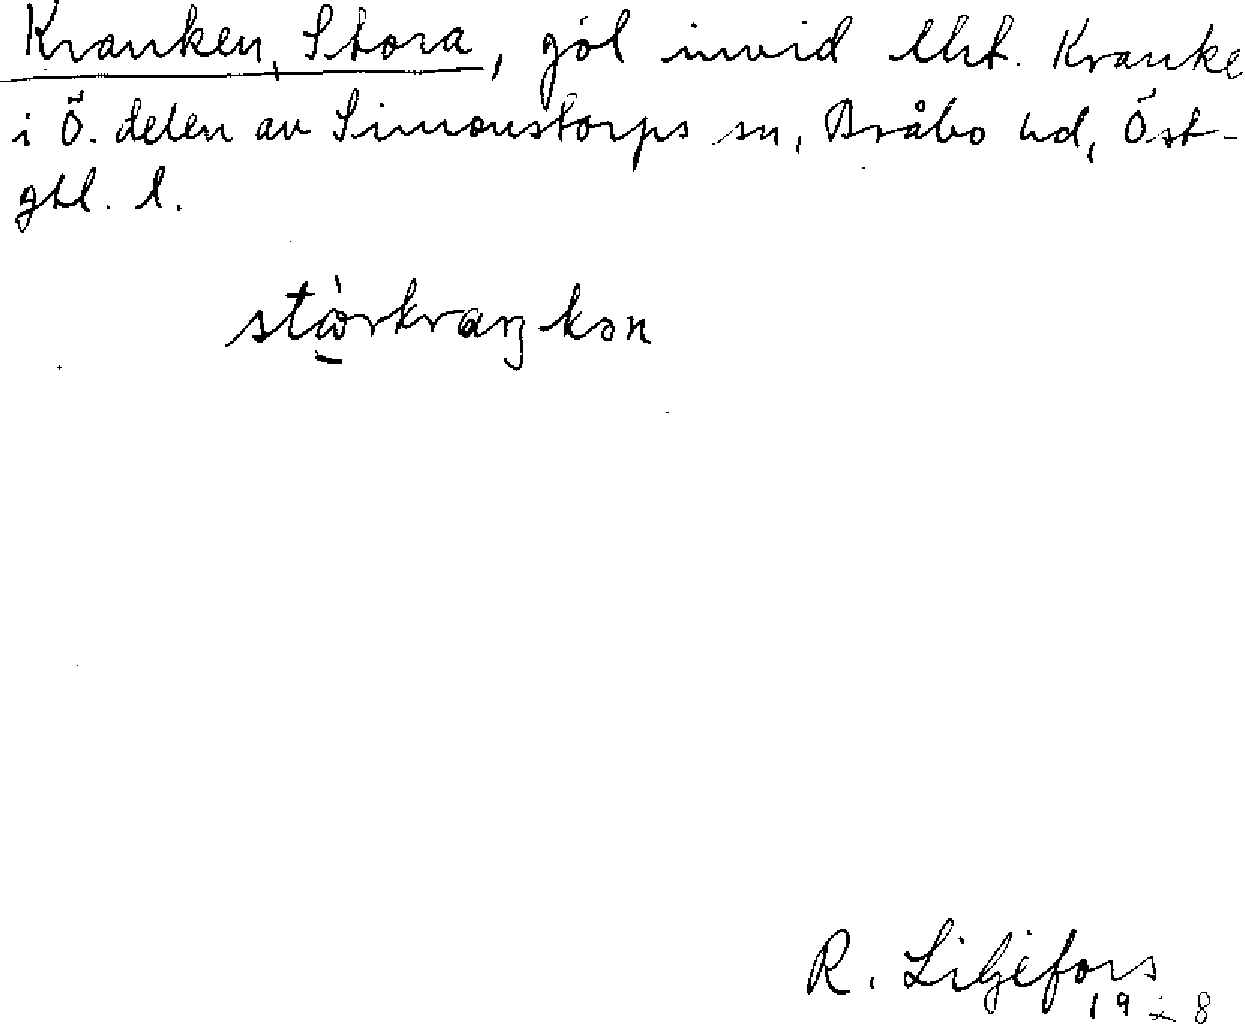 Kranken, Stora, göl invid lht. Kranke
i Ö. delen av Simonstorps sn, Bråbo hd, Öst-
gtl. l.
stòrkraŋkən
R. Liljefors
1928